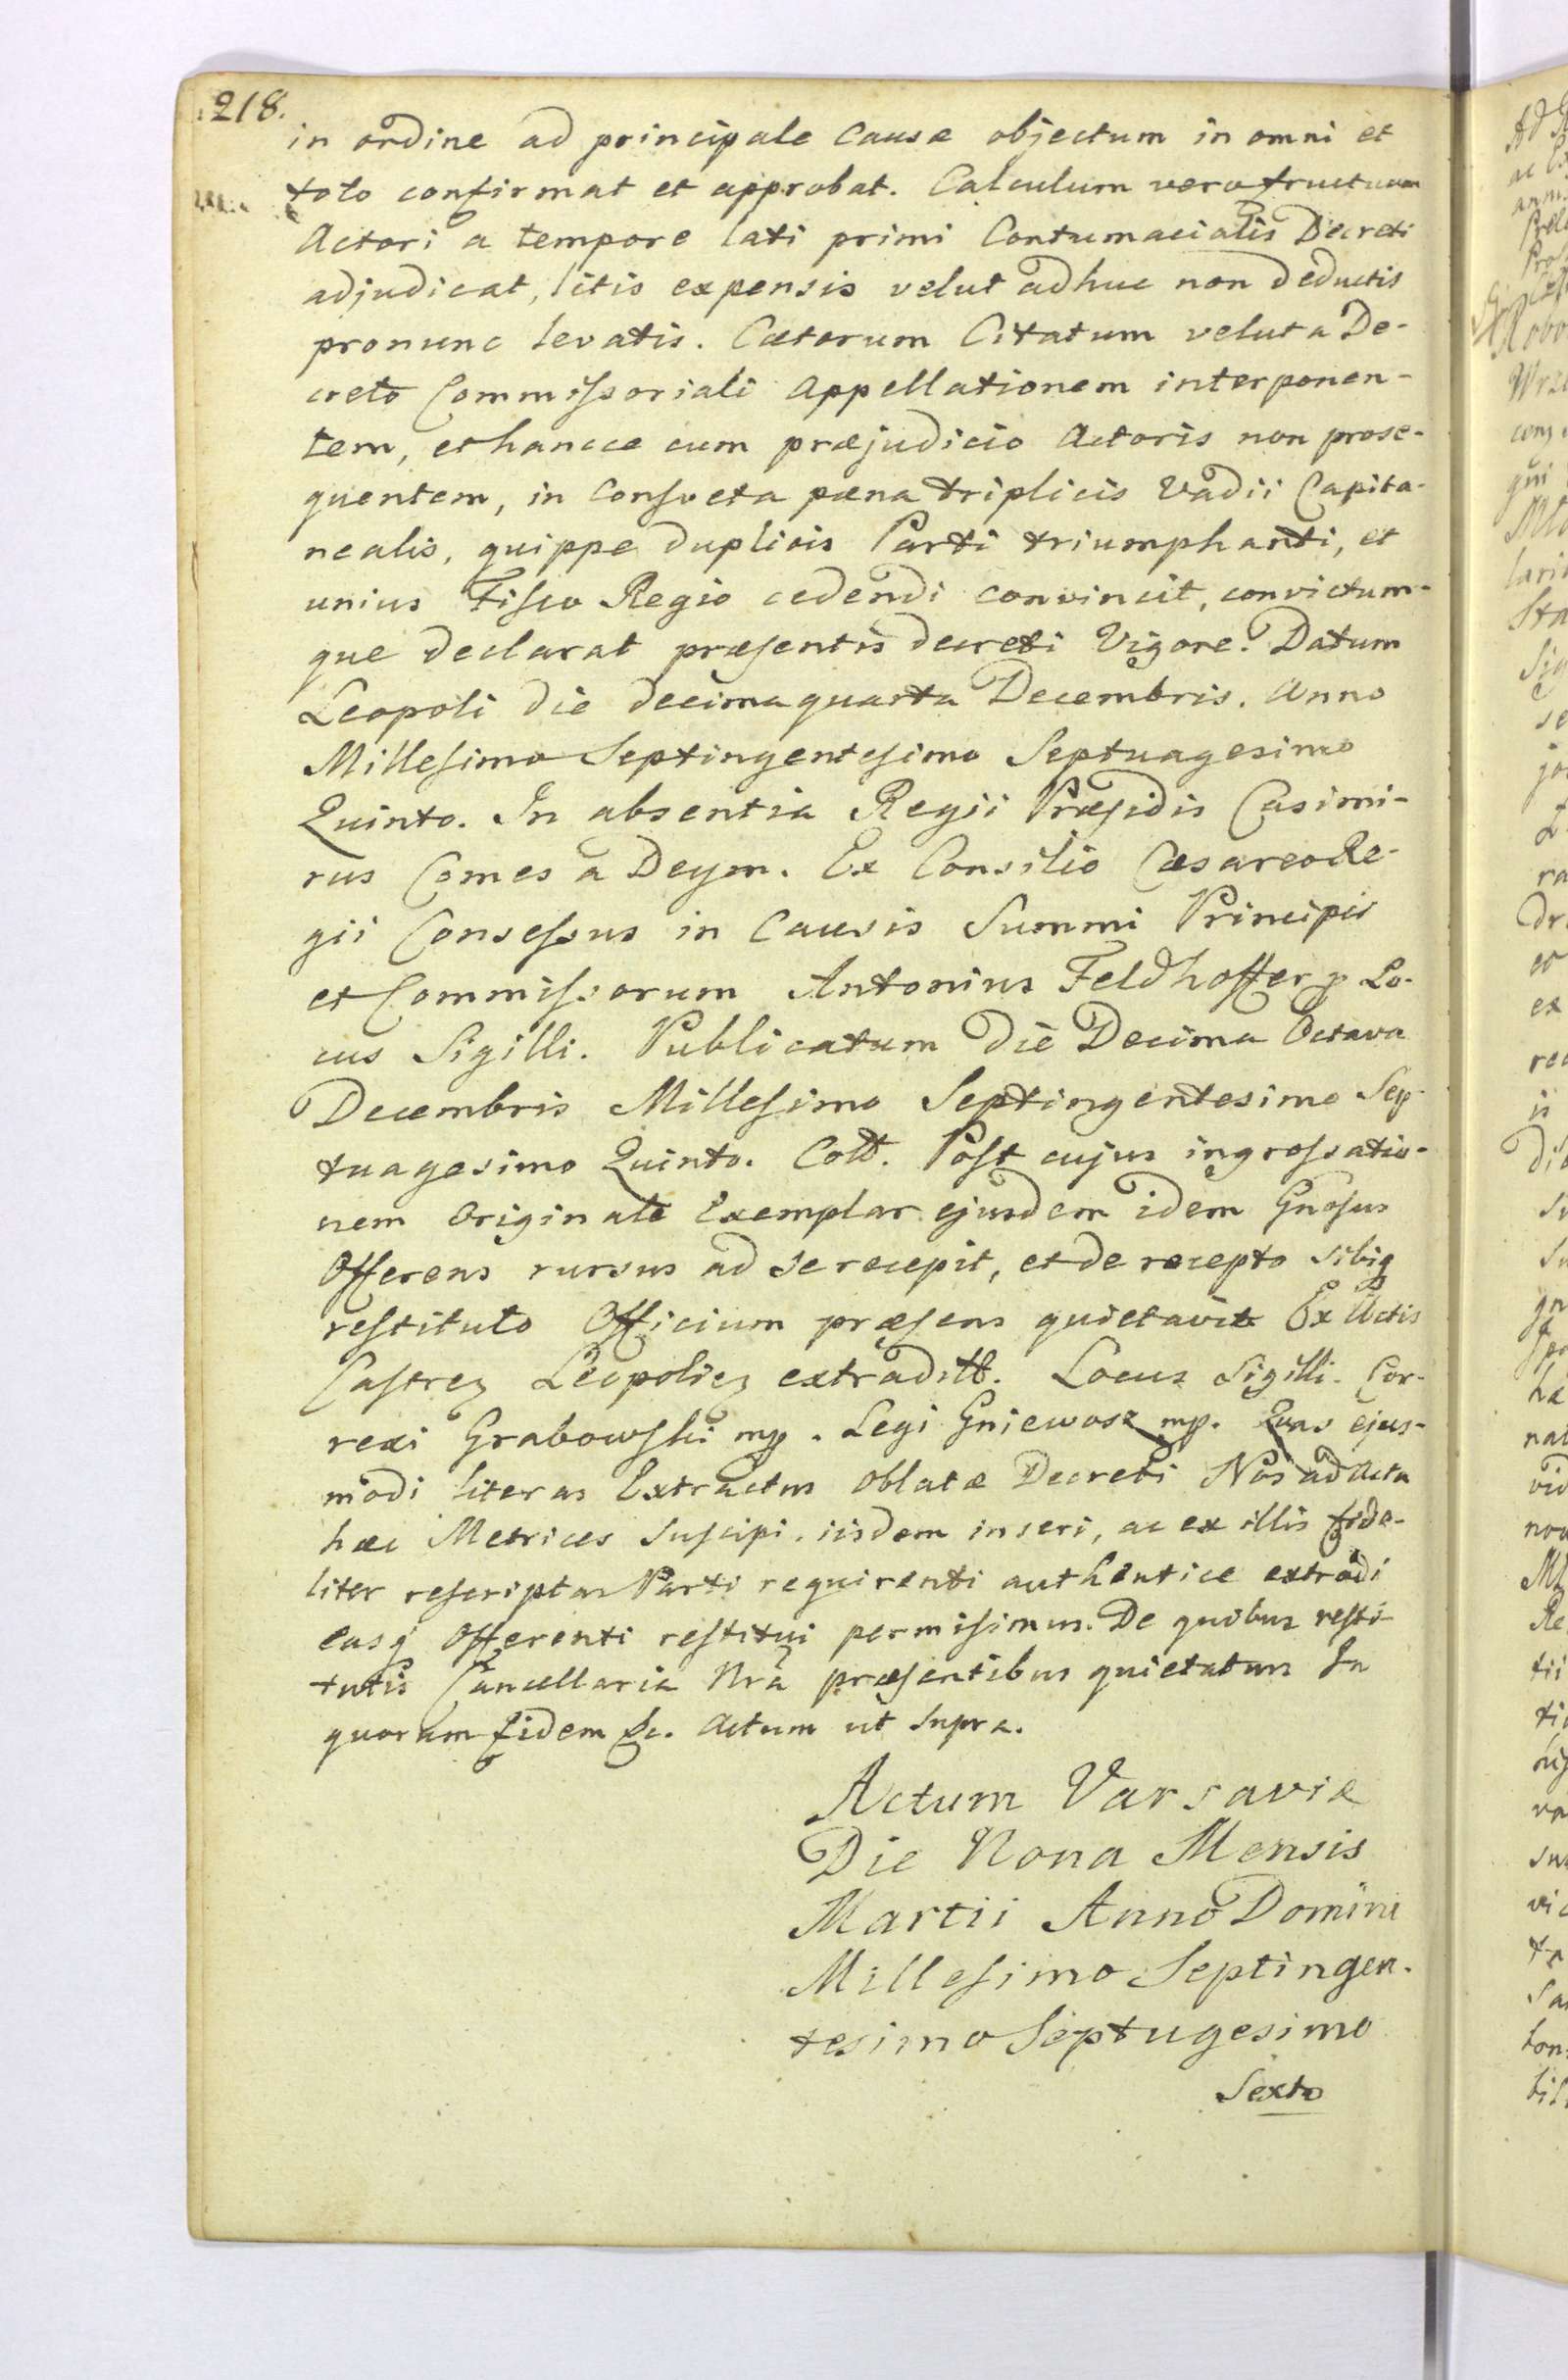 218.
in ordine ad principale Causæ objectum in omni et
toto confirmat et approbat. Calculum vero fructuum
Actori a tempore lati primi Contumacialis Decreti
adjudicat, litis expensis velut adhuc non deductis
pronunc levatis. Cætorum Citatum velut a De-
creto Commissoriali Appellationem interponen-
tem, et hancce cum præjudicio Actoris non prose-
quentem, in Consveta pæna triplicis Vadii Capita-
nealis, quippe duplicis Parti triumphanti, et
unius Fisco Regio cedendi convincit, convictum-
que declarat præsentis decreti Vigore. Datum
Leopoli die decima quarta Decembris. Anno
Millesimo Septingentesimo Septuagesimo
Quinto. In absentia Regii Præsidis Casimi-
rus Comes a Deym. Ex Consilio Cæsareo Re-
gii Consessus in Causis Summi Principis
et Commissorum Antonius Feldhoffer Lo-
cus Sigilli. Publicatum die Decima Octava
Decembris Millesimo Septingentesimo Sep-
tuagesimo Quinto. Coll. Post cujus ingrossatio-
nem Originale Exemplar ejusdem idem Gnosus
Offerens rursus ad se recepit, et de recepto sibiq
restituto Officium præsens quietavit Ex Actis
Castren Leopolien extraditt. Locus Sigilli. Cor-
rexi Grabowski mp. Legi Gniewosz mp. Quas ejus-
modi literas Extractus Oblatæ Decreti Nos ad Acta
hæc Metrices Suscipi. iisdem inseri, ac ex illis fide-
liter rescriptas Parti requirenti authentice extradi
easq Offerenti restitui permisimus. De quibus resti-
tutis Cancellaria Nra præsentibus quietatur In
quorum fidem &c. Actum ut Supra.
Actum Varsaviæ
Die Nona Mensis
Martii Anno Domini
Millesimo Septingen-
tesimo Septugesimo
Sexto